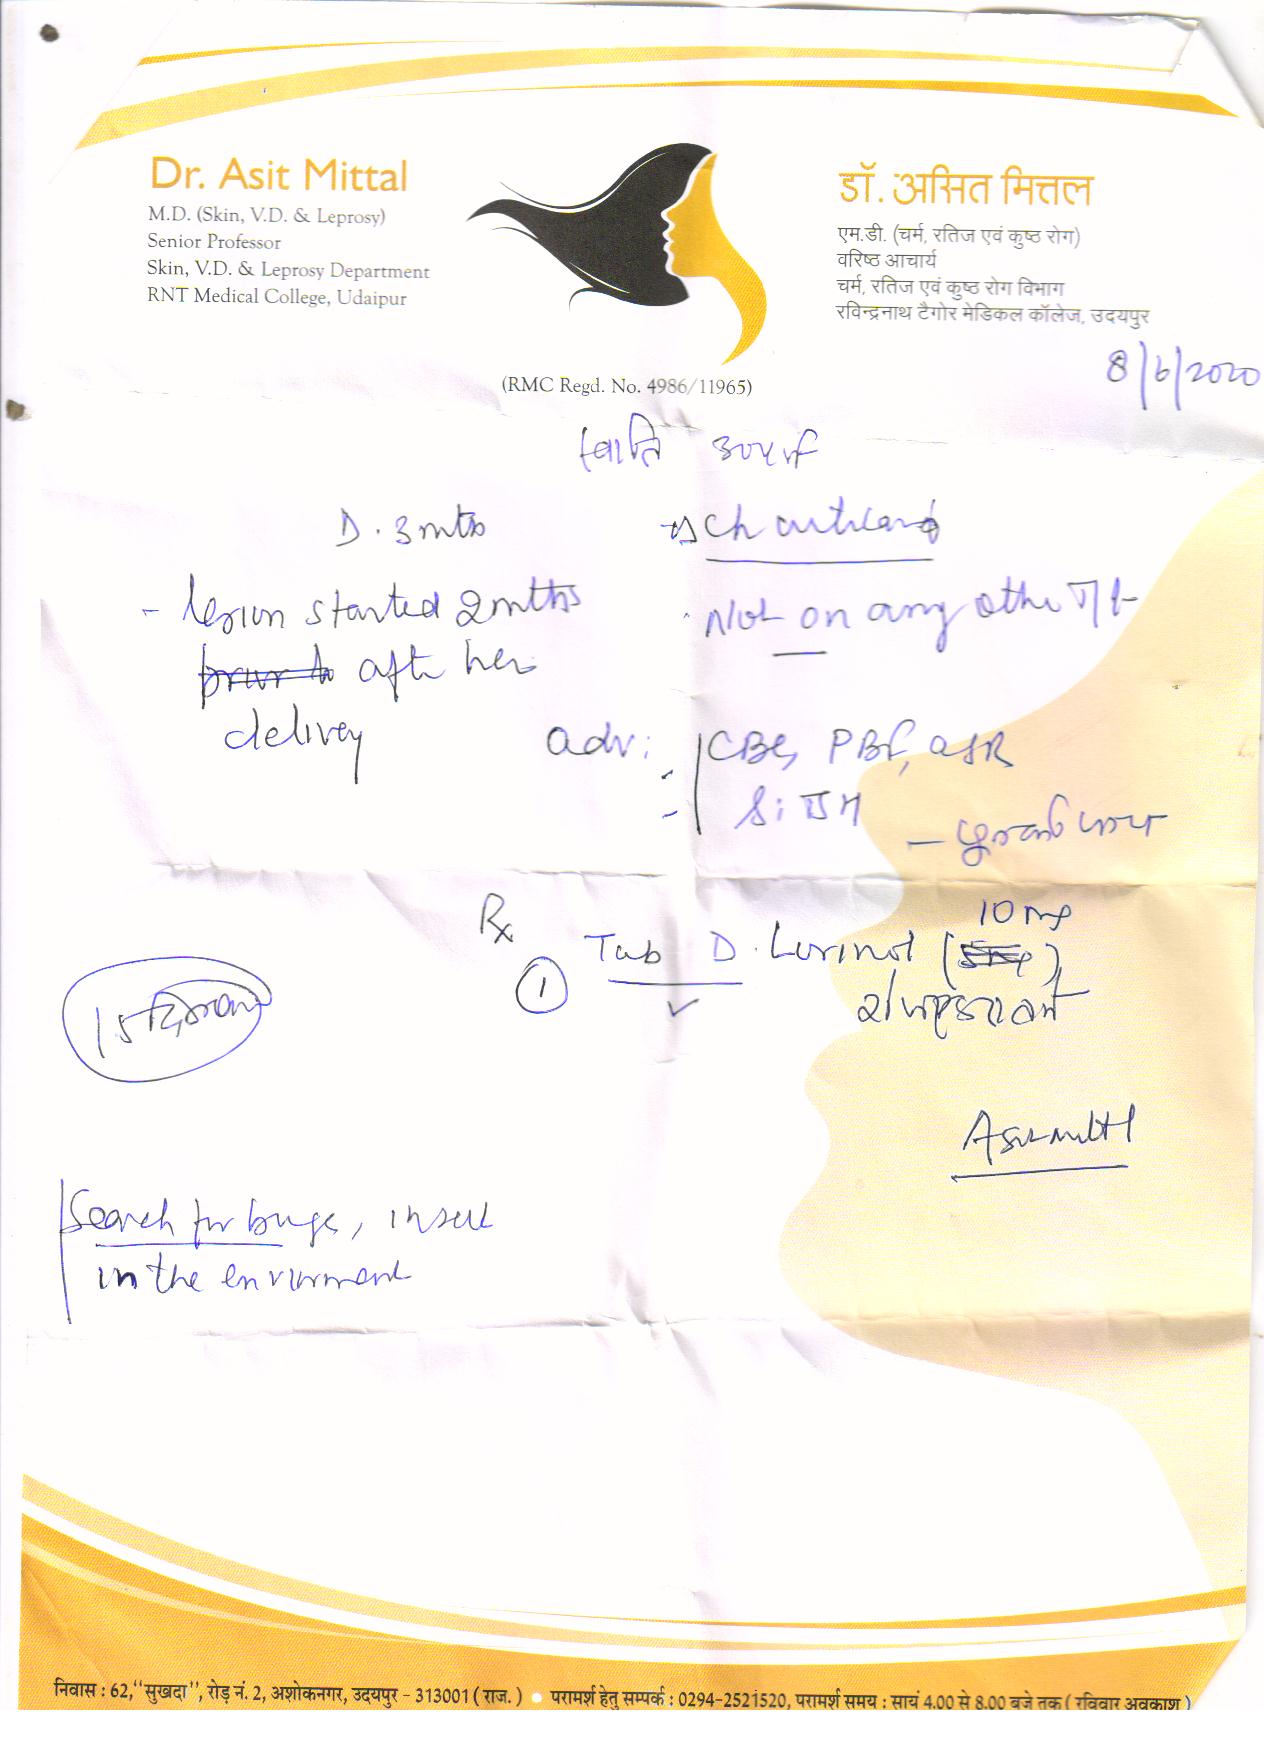 Dr. Asit Mittal
M.D. (Skin, V.D. & Leprosy)
Senior Professor
Skin, V.D. & Leprosy Department
RNT Medical College, Udaipur
डॉ. असित मित्तल
एम.डी. (चर्म, रतिज एवं कुष्ठ रोग)
वरिष्ठ आचार्य
चर्म, रतिज एवं कुष्ठ रोग विभाग
रविन्द्रनाथ टैगोर मेडिकल कॉलेज, उदयपुर
(RMC Regd. No. 4986/11965)
8/6/2020
D. 3mths
Ch
- lesion started 2mths
after her
delivery
Not on any other T/t
adv: CBC, PBF,
S. 
Rx
① Tab D. (10 mg)
Search for bugs, insect
in the envirment
निवास : 62, "सुखदा", रोड़ नं. 2, अशोकनगर, उदयपुर - 313001 (राज.) • परामर्श हेतु सम्पर्क : 0294-2521520, परामर्श समय : सायं 4.00 से 8.00 बजे तक (रविवार अवकाश)